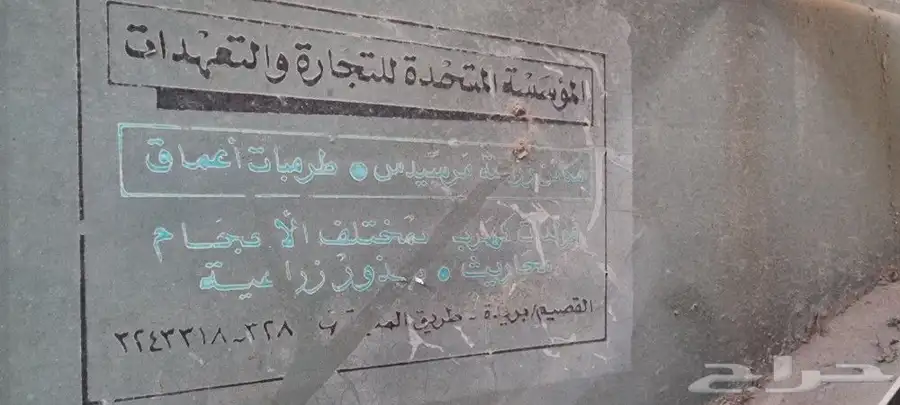 المؤسسة المتحدة للتجارة والتعهدات
مكائن زراعية مرسيدس • طرمبات أعماق
مولدات كهرباء بمختلف الأحجام
محاريث • بذور زراعية
القصيم/بريدة - طريق ٣٢٨-٣٢٤٣٣١٨
حراج